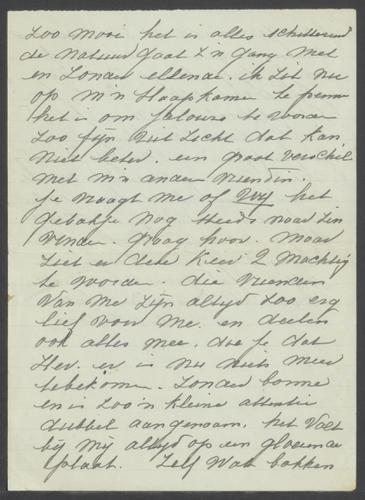 zoo mooi het is alles schitterend
de natuur gaat z'n gang met
en zonder ellende. ik zit nu
op m'n slaapkamer te pennen
het is om jaloers te worden
zoo fijn zit zacht dat kan
niet beter. een groot verschil
met m'n ander vriendin.
je vraagt me of wij het
gebakje nog steeds naar zin
vinden. graag hoor. maar
ziet er deze keer 2 machtig
te worden. die vrienden
van me zijn altijd zoo erg
lief voor me. en deelen
ook alles mee. doe je dat
er is nu niets meer
te bekomen. zonder bonne
en is zoo'n kleine attentie
dubbel aangenaam. het valt
bij mij altijd op een gloeiende
plaat. Zelf wat bakken